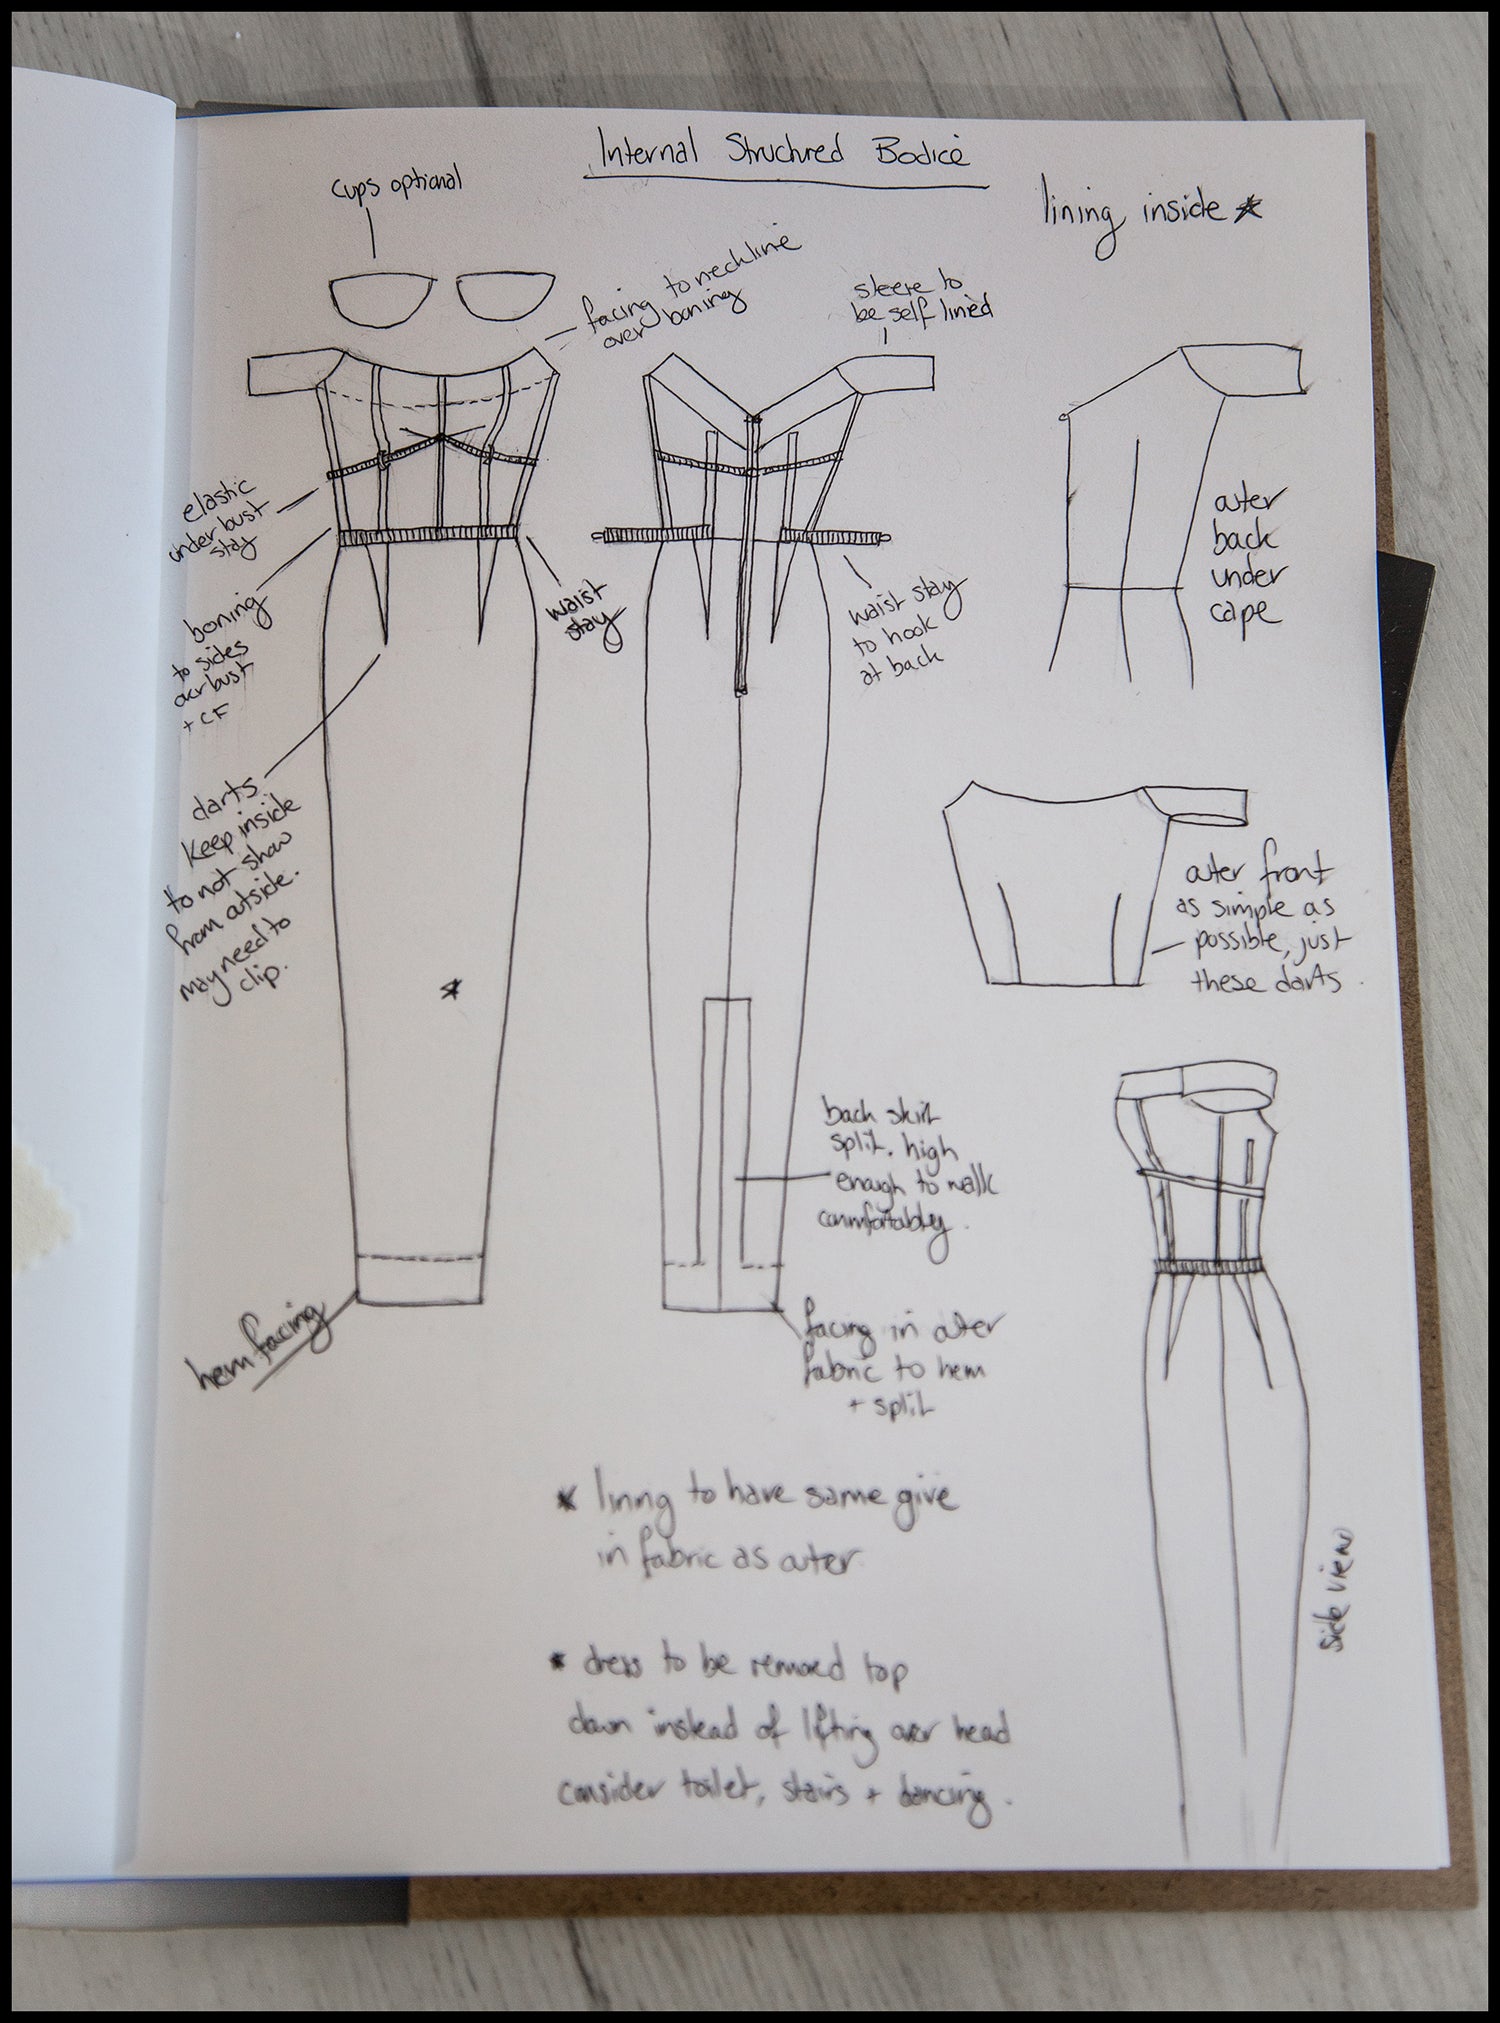 Internal Structured Bodice
cups optional
lining inside *
facing to neckline
over boning
sleeve to
be self lined
elastic
under bust
stay
boning
to sides
over bust
+ CF
waist
stay
waist stay
to hook
at back
outer
back
under
cape
darts.
Keep inside
to not show
from outside.
may need to
clip.
*
outer front
as simple as
possible, just
these darts.
back skirt
split. high
enough to walk
comfortably.
hem facing
facing in outer
fabric to hem
+ split
* lining to have same give
in fabric as outer.
* dress to be removed top
down instead of lifting over head
consider toilet, stairs + dancing.
side view